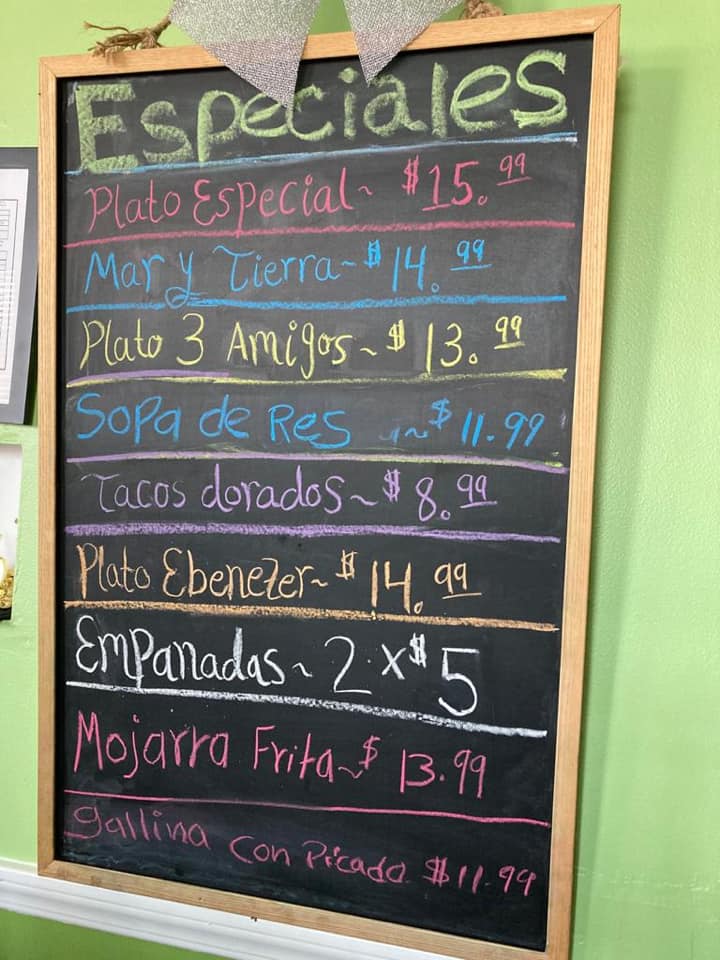 Especiales
Plato Especial ~ $15.99
Mar y Tierra ~ $14.99
Plato 3 Amigos ~ $13.99
Sopa de Res ~ $11.99
Tacos dorados ~ $8.99
Plato Ebenezer ~ $14.99
Empanadas ~ 2 x $5
Mojarra Frita ~ $13.99
gallina con Picado $11.99